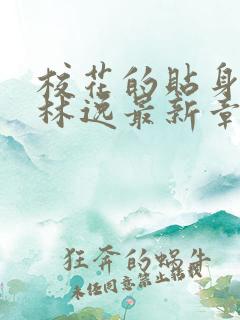 校花的贴身
林逸最新章
狂奔的蜗牛
未经同意禁止转载